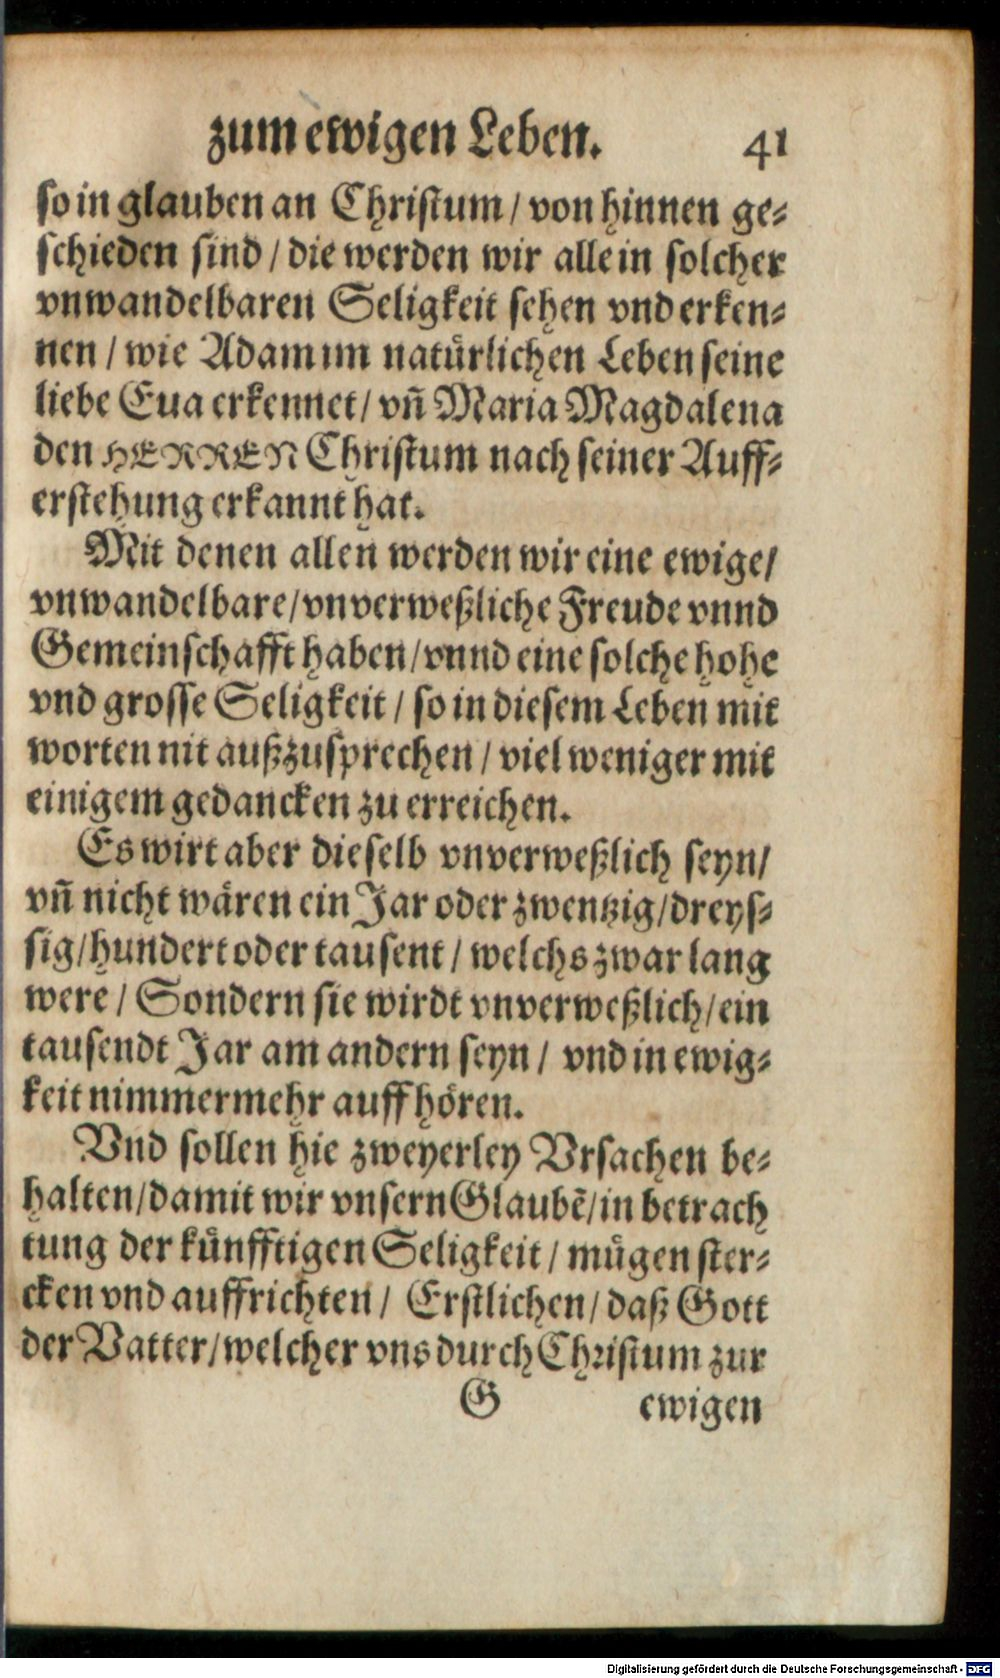 zum ewigen Leben. 41
so in glauben an Christum / von hinnen ge-
schieden sind / die werden wir alle in solcher
vnwandelbaren Seligkeit sehen vnd erken-
nen / wie Adam im natürlichen Leben seine
liebe Eua erkennet / vñ Maria Magdalena
den HERREN Christum nach seiner Auff-
erstehung erkannt hat.
Mit denen allen werden wir eine ewige /
vnwandelbare / vnverweßliche Freude vnnd
Gemeinschafft haben / vnnd eine solche hohe
vnd grosse Seligkeit / so in diesem Leben mit
worten nit außzusprechen / viel weniger mit
einigem gedancken zu erreichen.
Es wirt aber dieselb vnverweßlich seyn /
vñ nicht wären ein Jar oder zwentzig / dreys-
sig / hundert oder tausent / welchs zwar lang
were / Sondern sie wirdt vnverweßlich / ein
tausendt Jar am andern seyn / vnd in ewig-
keit nimmermehr auffhören.
Vnd sollen hie zweyerley Vrsachen be-
halten / damit wir vnsern Glaubẽ / in betrach
tung der künfftigen Seligkeit / mügen ster-
cken vnd auffrichten / Erstlichen / daß Gott
der Vatter / welcher vns durch Christum zur
G ewigen
Digitalisierung gefördert durch die Deutsche Forschungsgemeinschaft - DFG